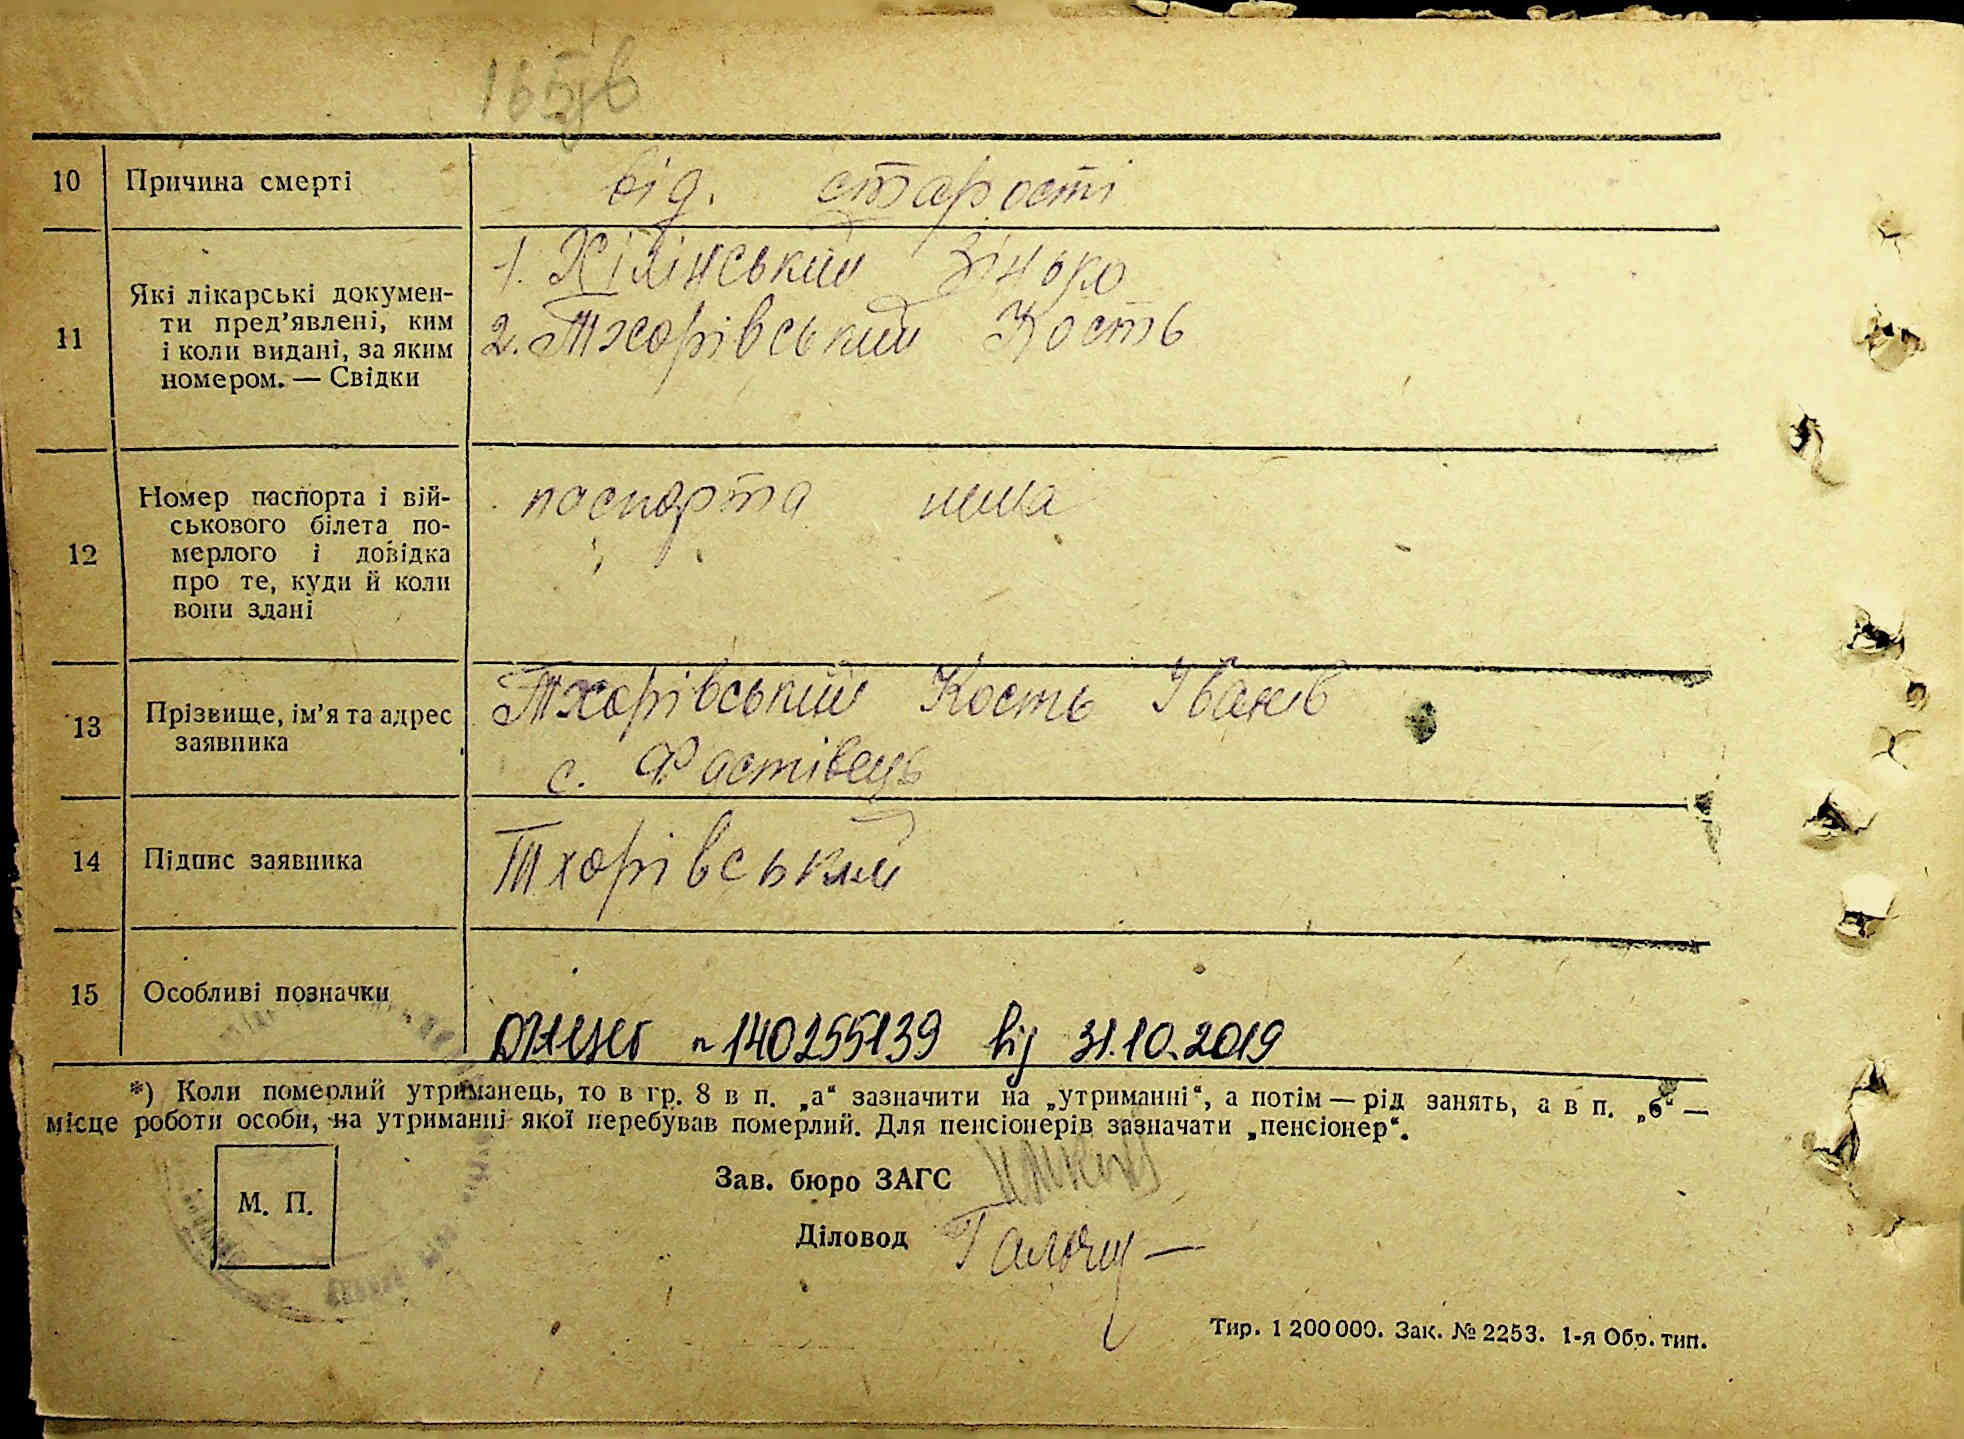 10 Причина смерті від. старості
11 Які лікарські докумен-
ти пред’явлені, ким
і коли видані, за яким
номером. — Свідки
1. Хілінський Зінько
2. Тхорівський Кость
12 Номер паспорта і вій-
ськового білета по-
мерлого і довідка
про те, куди й коли
вони здані
паспорта нема
13 Прізвище, ім’я та адрес
заявника
Тхорівський Кость Іванів
с. Фастівець
14 Підпис заявника Тхорівський
15 Особливі позначки
140255139 від 31.10.2019
*) Коли померлий утриманець, то в гр. 8 в п. „а“ зазначити на „утриманні“, а потім — рід занять, а в п. „б“ —
місце роботи особи, на утриманні якої перебував померлий. Для пенсіонерів зазначати „пенсіонер“.
М. П.
Зав. бюро ЗАГС
Діловод
Тир. 1 200 000. Зак. № 2253. 1-я Обр. тип.